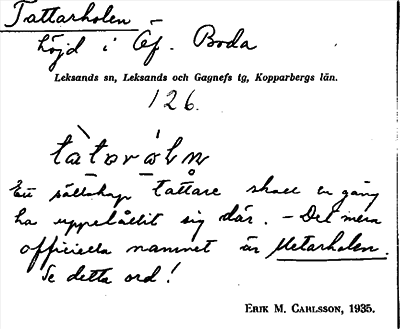 Tattarholen
höjd i Öf. Boda
Leksands sn, Leksands och Gagnefs tg, Kopparbergs län.
126.
tàtarhóln
Ett sällskap tattare skall en gång
ha uppehållit sig där. – Det mera
officiella namnet är Metarholen.
Se detta ord!
ERIK M. CARLSSON, 1935.